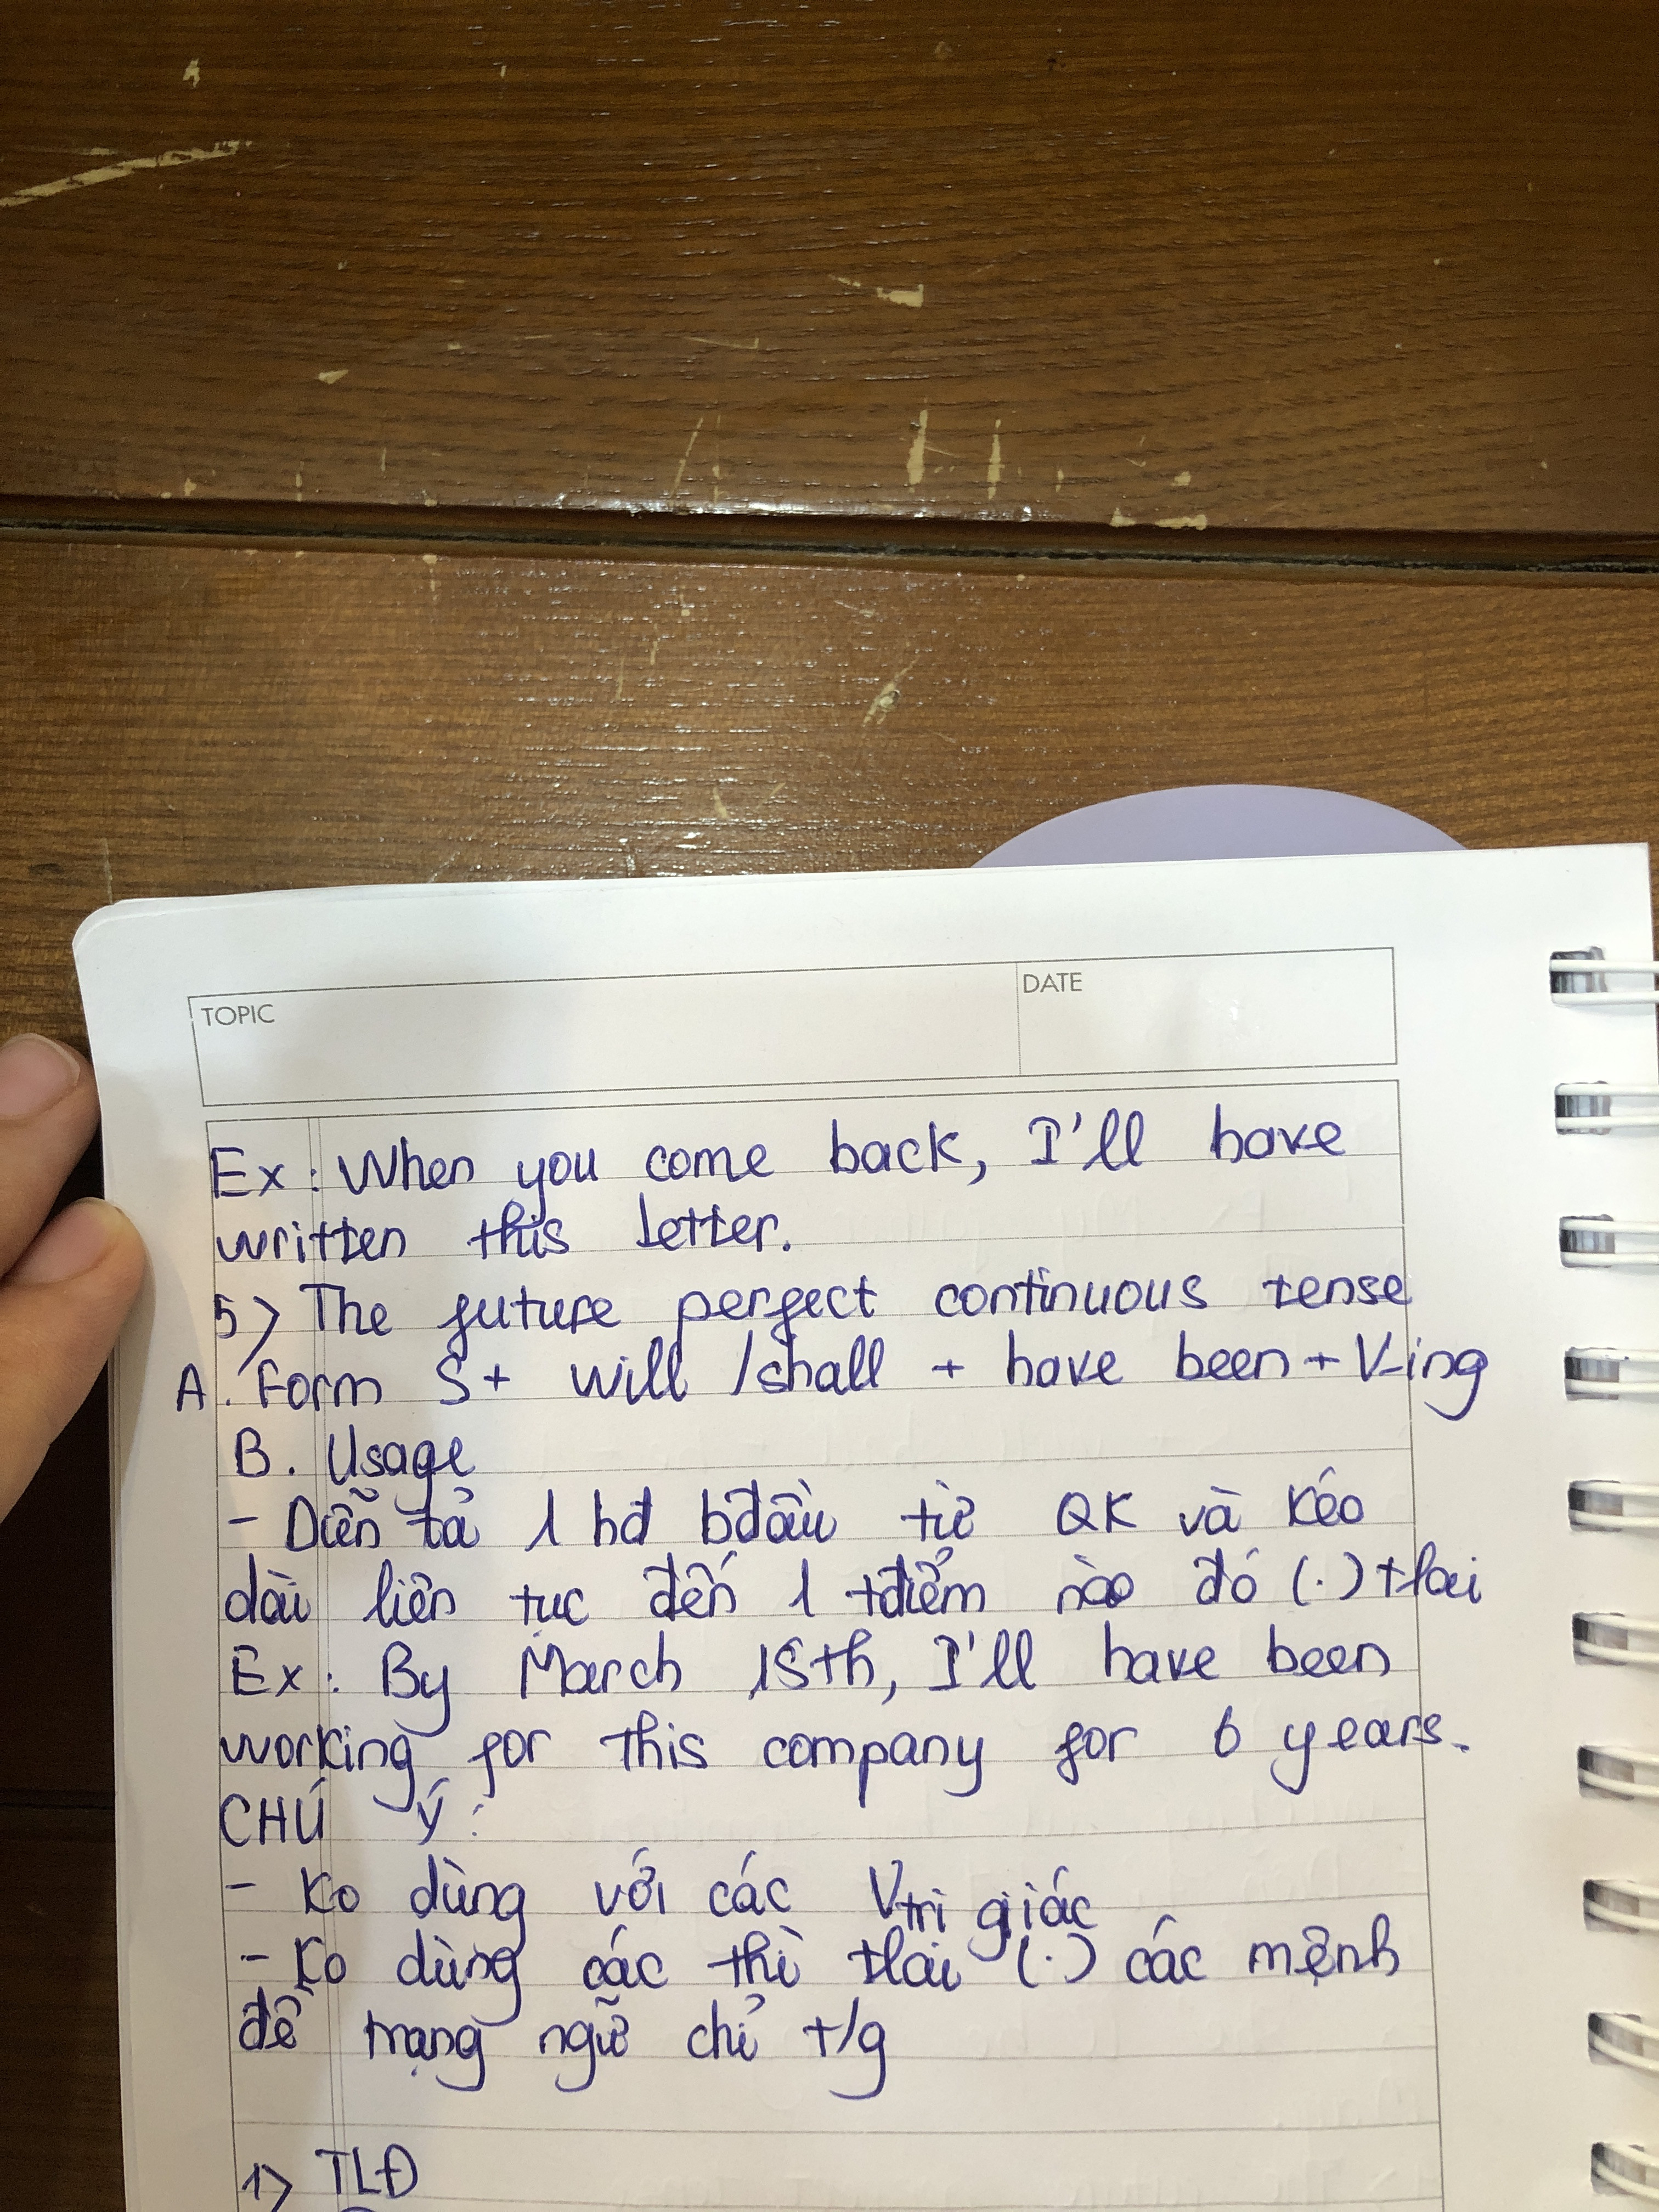 TOPIC
DATE
Ex: When you come back, I'll have
written this letter.
5> The future perfect continuous tense
A. Form S + will / shall + have been + V-ing
B. Usage
- Diễn tả 1 hđ bđầu từ QK và kéo
dài liên tục đến 1 tđiểm nào đó (.) tlai
Ex: By March 15th, I'll have been
working for this company for 6 years.
CHÚ Ý:
- Ko dùng với các Vtri giác
- Ko dùng các thì tlai (.) các mệnh
đề trạng ngữ chỉ t/g
1> TLĐ